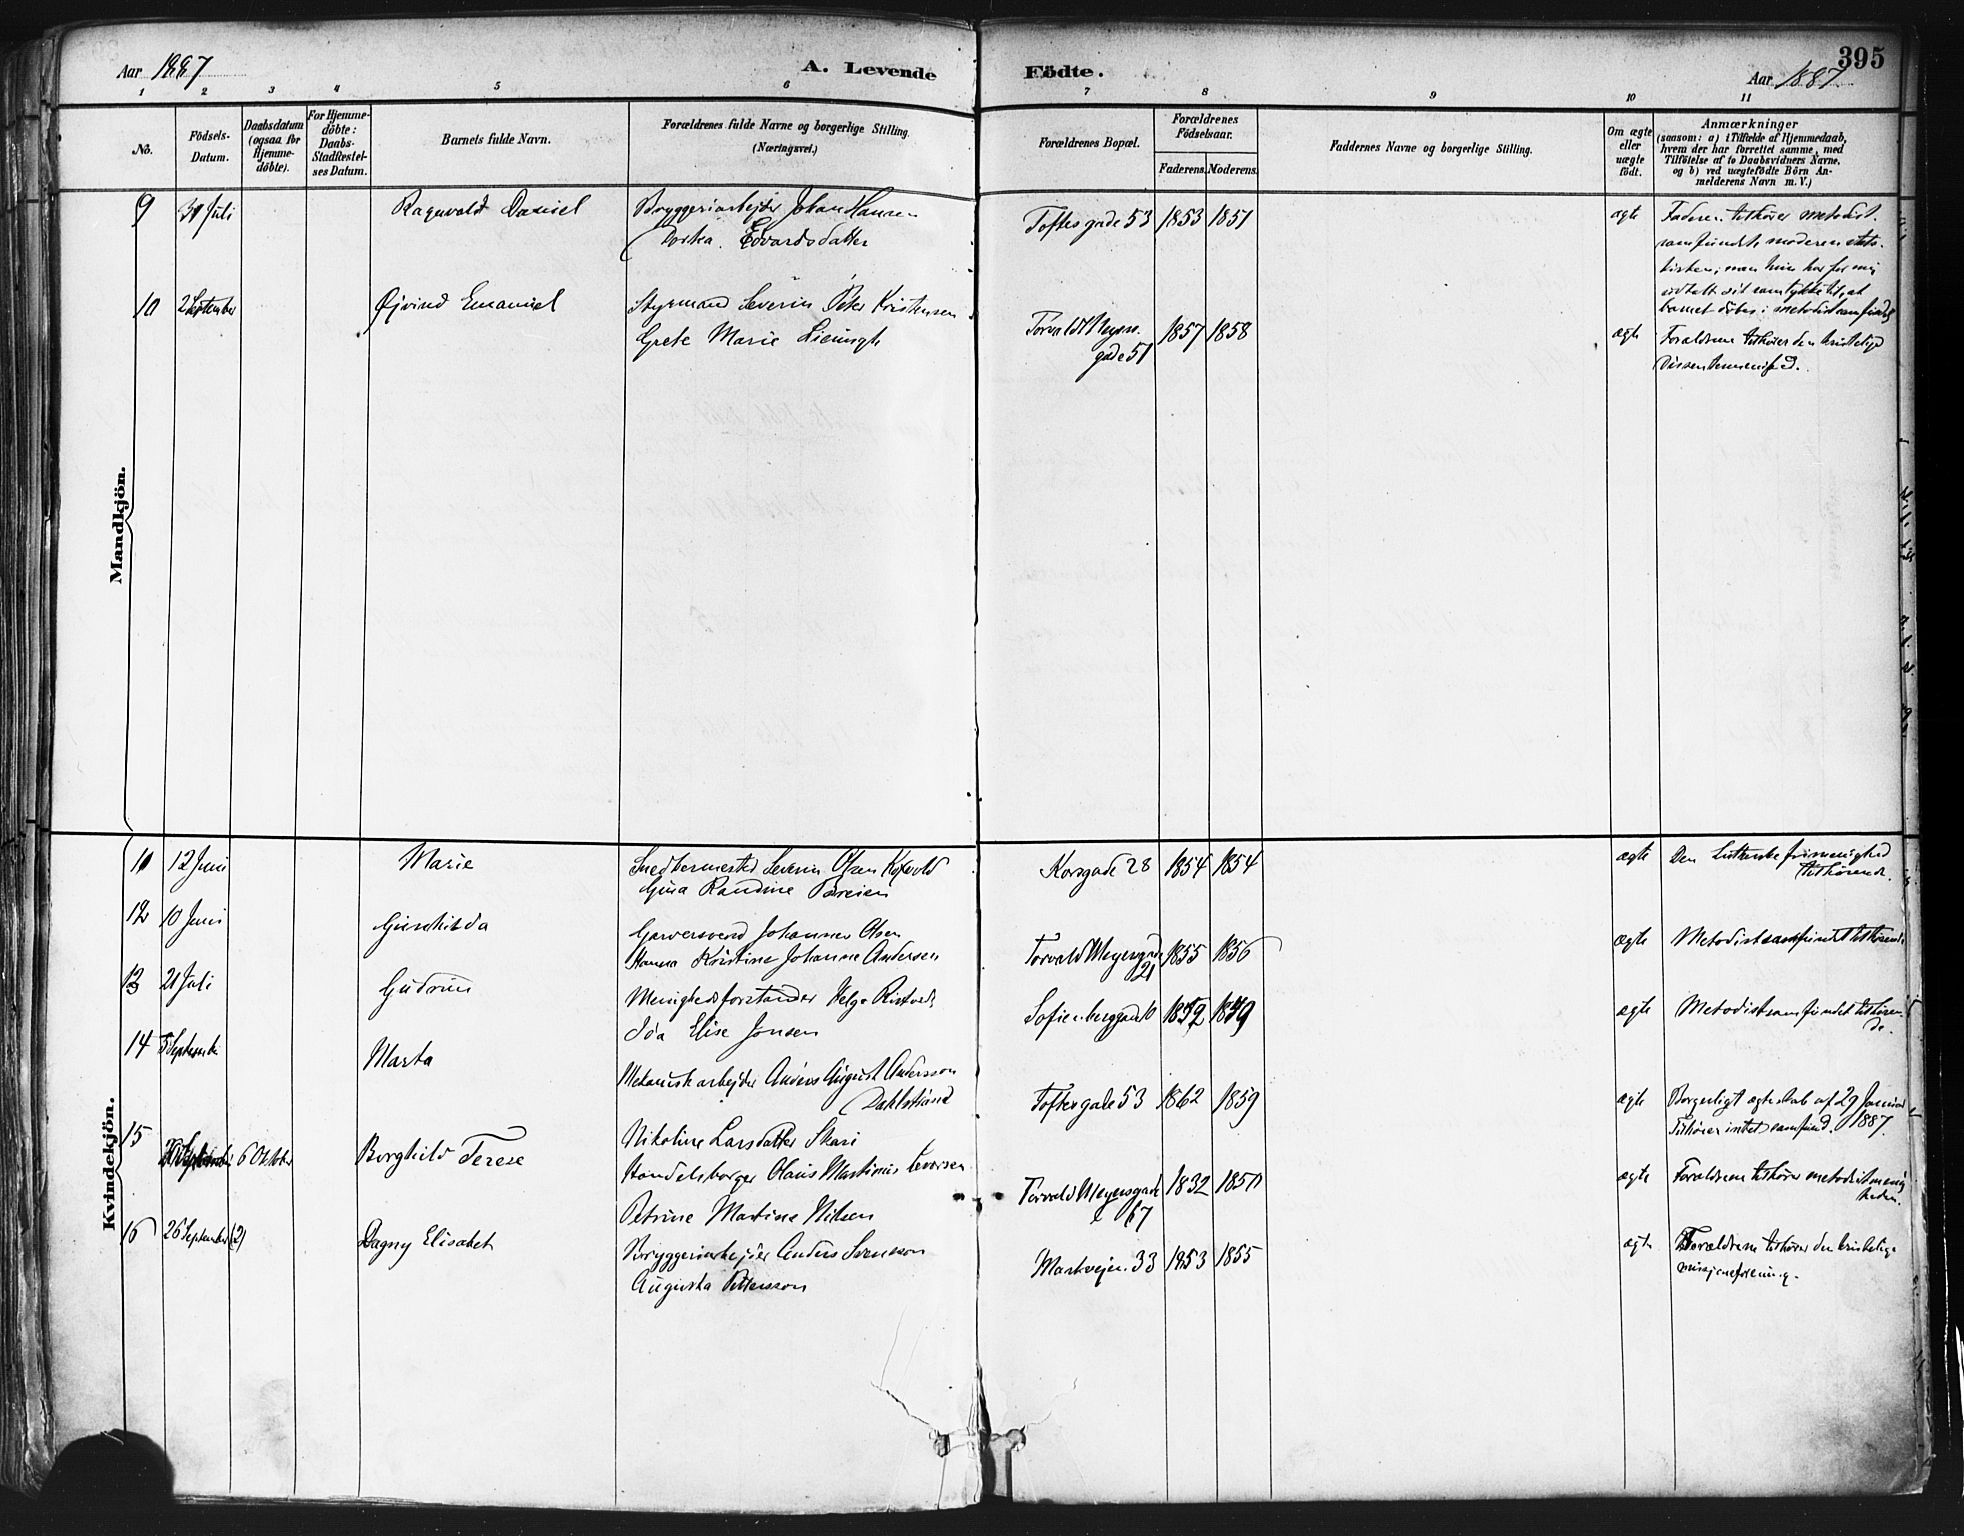 Aar 1887
A. Levende
Födte.
395
Aar 1887
1 2 3 4 5 6 7 8 9 10 11
No.
Födsels-
Datum.
Daabsdatum
(ogsaa for
Hjemme-
döbte).
For Hjemme-
döbte:
Daabs-
Stadfæstel-
ses Datum.
Barnets fulde Navn.
Forældrenes fulde Navne og borgerlige Stilling.
(Næringsvei.)
Forældrenes Bopæl.
Forældrenes
Födselsaar.
Faderens. Moderens.
Faddernes Navne og borgerlige Stilling.
Om ægte
eller
uægte
födt.
Anmærkninger
(saasom: a) i Tilfælde af Hjemmedaab,
hvem der har forrettet samme, med
Tilföielse af to Daabsvidners Navne.
og b) ved uægtefödte Börn An-
melderens Navn m. V.)
Mandkjön.
9 31 Juli Ragnvald Daniel Bryggeriarbejder Johan Hansen
Dortea Edvardsdatter
Toftes gade 53 1853 1851 ægte
Faderen tilhører metodist-
samfundet, moderen stats-
kirken; men hun har for mig
udtalt sit samtykke til, at
barnet døbes i metodistsamfundet
10 2 September Øjvind Emanuel Styrmand Severin Peter Kristensen
Grete Marie
Torvald Meyers
gade 51 1857 1858 ægte
Forældrene tilhører den kristelige
Dissentermenighed.
Kvindekjön.
11 12 Juni Marie Snedkermester Severin Olsen
Gina Randine
Korsgade 28 1854 1854 ægte
Den Lutherske frimenighed
tilhørende.
12 10 Juni Gunhilda Garversvend Johannes Olsen
Hanna Kristine Johanne Andersen
Torvald Meyersgade
21 1855 1856 ægte
Metodistsamfundet tilhørende
13 21 Juli Gudrun Menighedsforstander Helge
Ida Elise Jonsen
Sofienberggade 10 1852 1859 ægte
Metodistsamfundet tilhøren-
de.
14 5 September Marta Mekanisk arbejder Anders August Andersson
Dahlstrand
Nikoline Larsdatter Skari
Toftesgade 53 1862 1859 ægte
Borgerligt ægteskab af 29 Januar
1887.
Tilhører intet samfund.
15 September 6 Oktober Borghild Terese
Handelsborger Olaus Martinius Iversen
Petrine Martine Nilsen
Torvald Meyersgade
67 1832 1850 ægte
Forældrene tilhører metodistmenig
heden.
16 26 September (2) Dagny Elisabet Bryggeriarbejder Anders Svensson
Augusta Pettersson
Markvejen 33 1853 1855 ægte
Forældrene tilhører den kristelige
missjonsforening.